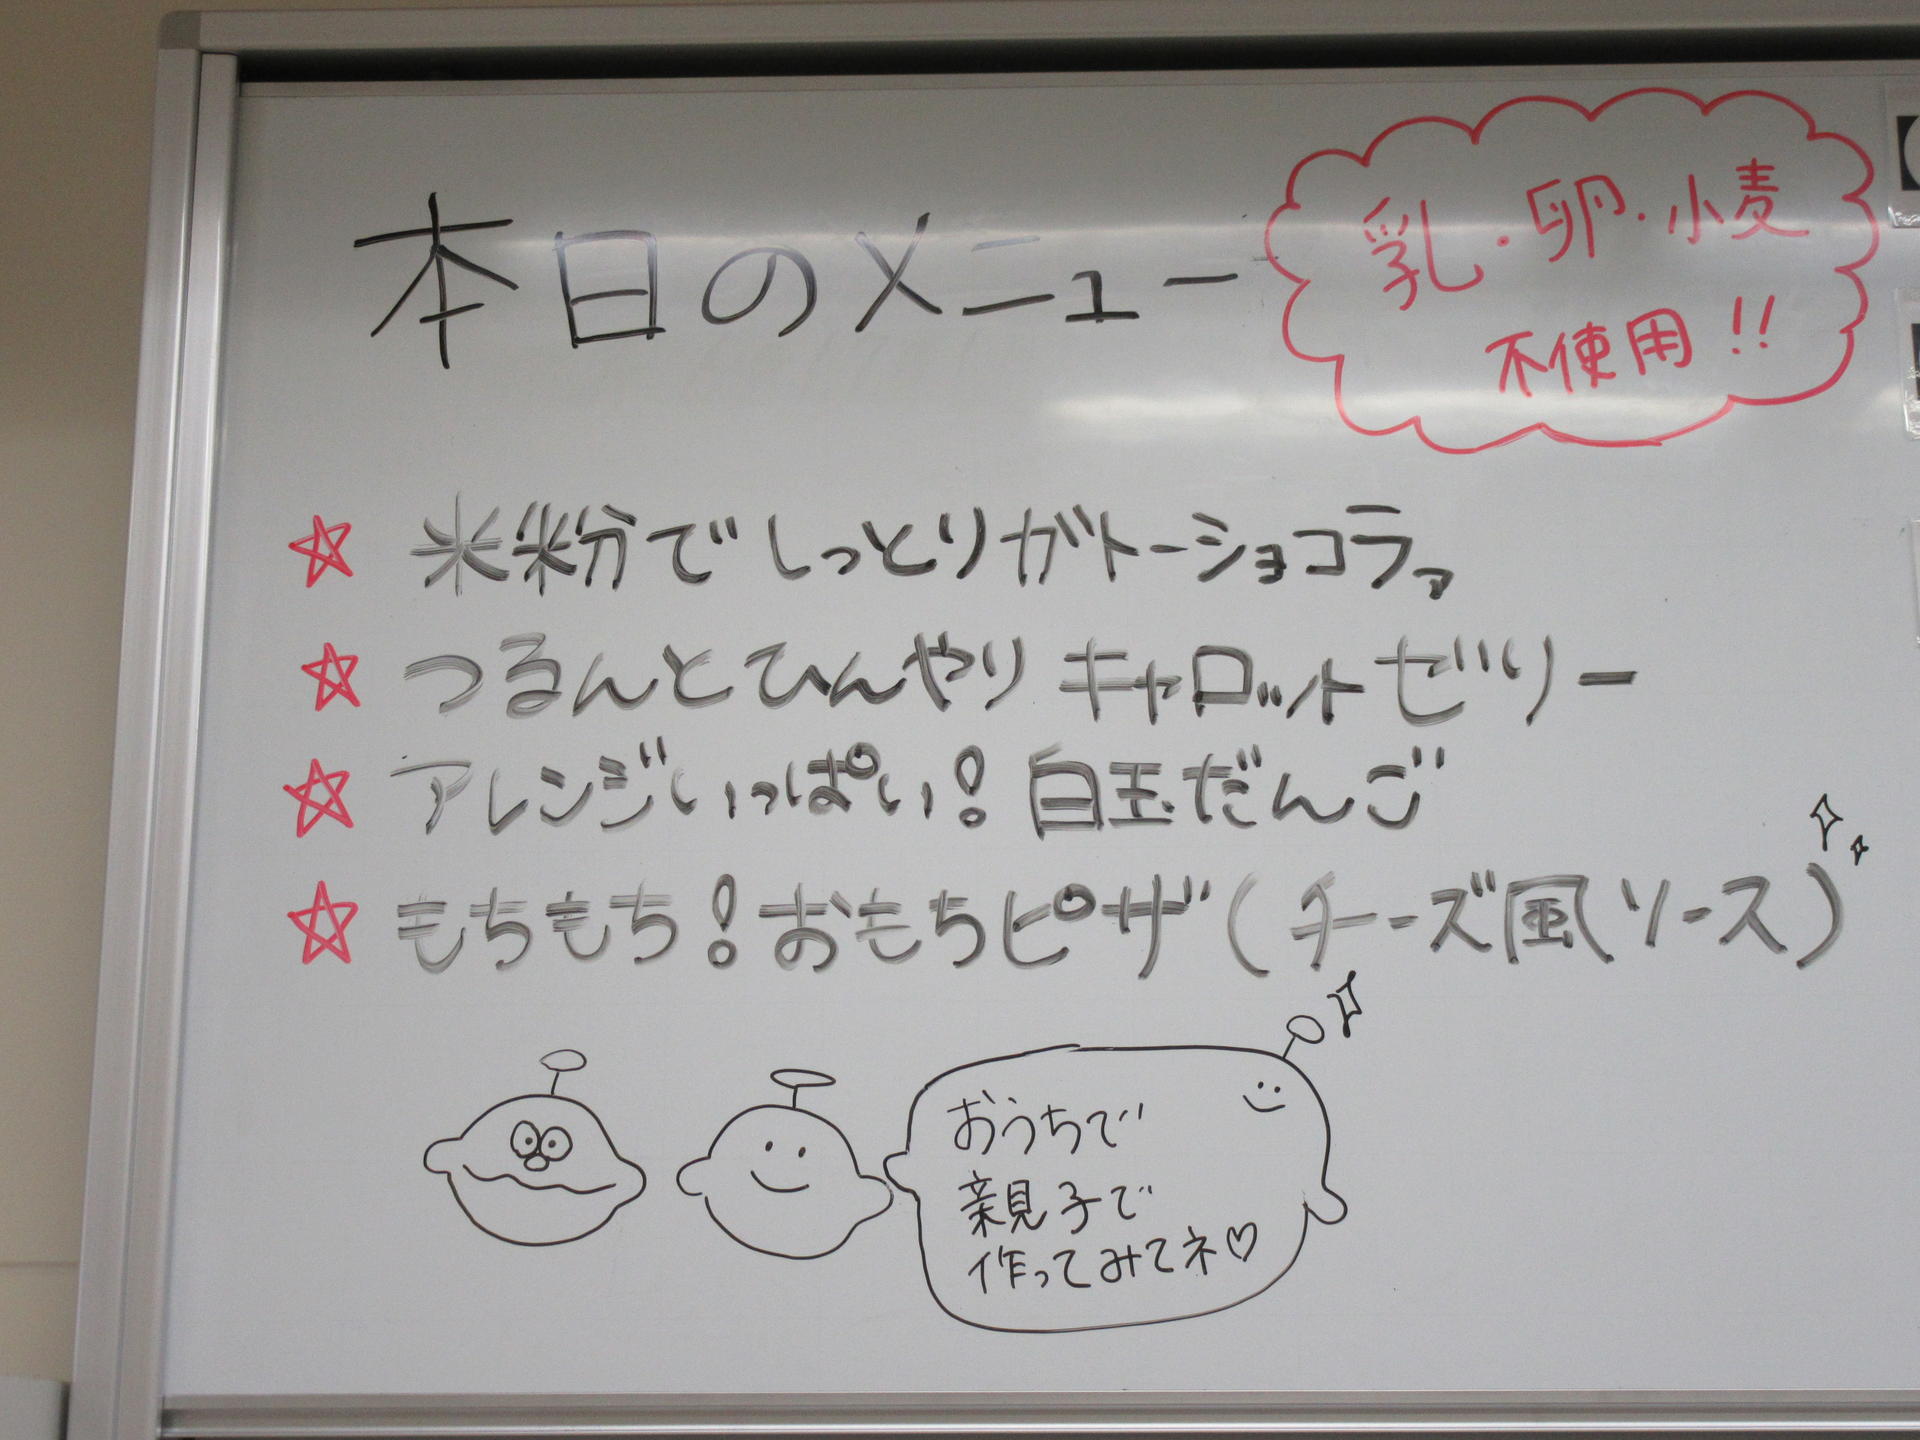 本日のメニュー
乳・卵・小麦
不使用!!
☆ 米粉でしっとりガトーショコラァ
☆ つるんとひんやり キャロットゼリー
☆ アレンジいっぱい! 白玉だんご
☆ もちもち!おもちピザ(チーズ風ソース)
おうちで
親子で
作ってみてネ♡